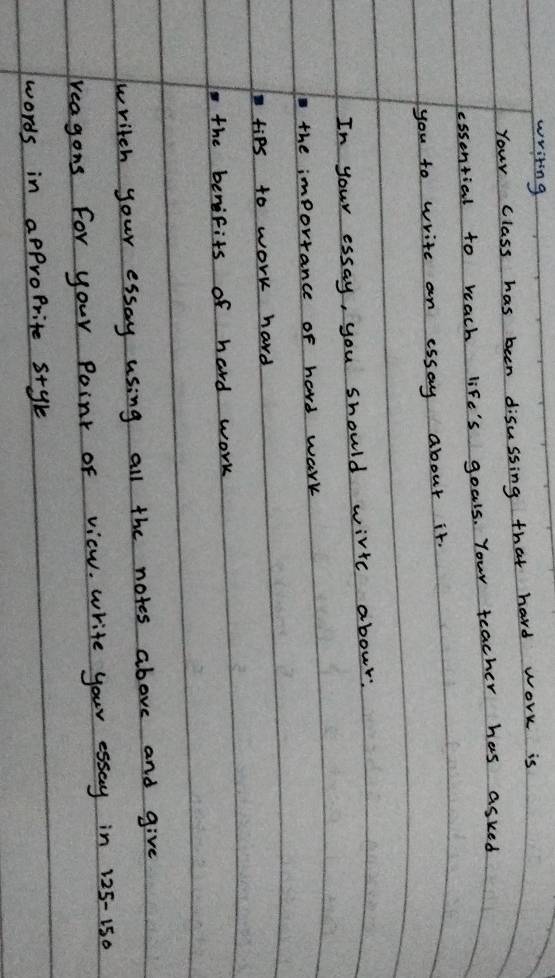 writing
Your class has been disussing that hard work is
essential to reach life's goals. Your teacher has asked
you to write an essay about it.
In your essay, you should wirte about:
▪ the importance of hard work
▪ tips to work hard
▪ the benifits of hard work
writeh your essay using all the notes above and give
reagons for your point of view. write your essay in 125-150
words in approprite style